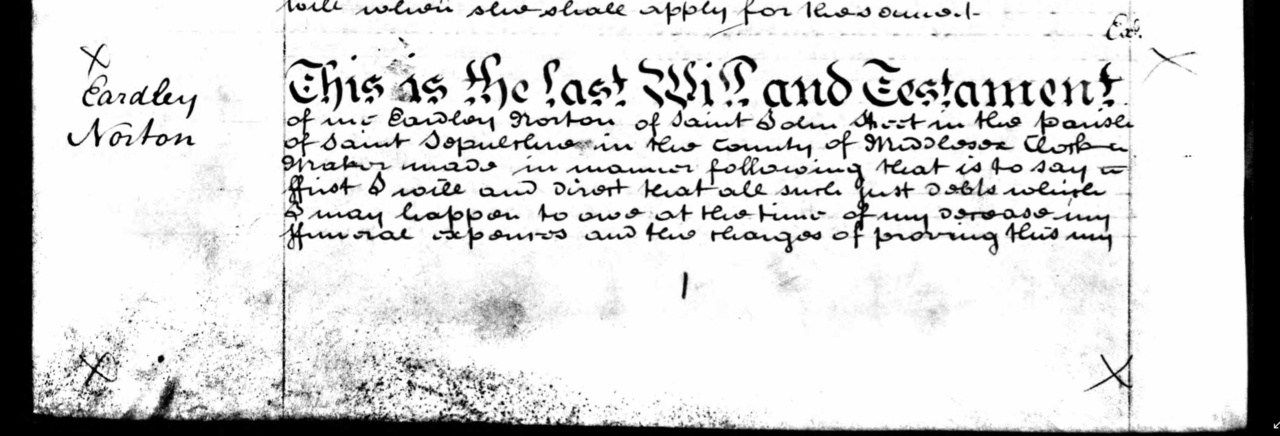 will when she shall apply for the same
Ext.
Eardley
Norton
This is the last Will and Testament
of me Eardley Norton of Saint John Street in the parish
of Saint Sepulchre in the County of Middlesex Clock
Maker made in manner following that is to say
ffirst I will and direct that all such just debts which
I may happen to owe at the time of my decease my
ffuneral expences and the charges of proving this my